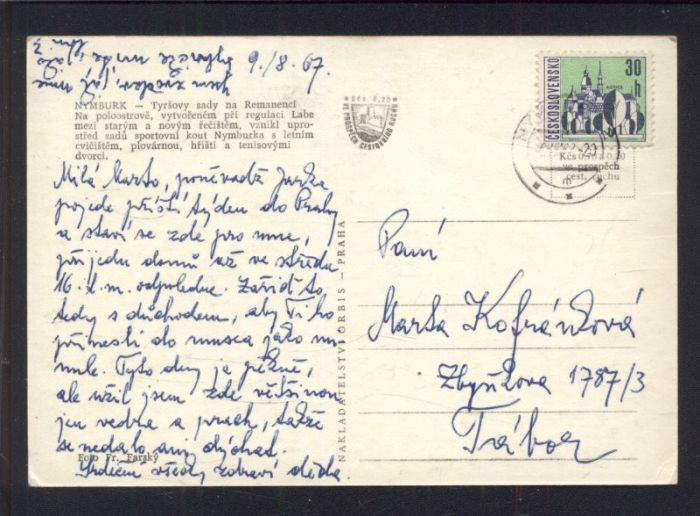 9./8. 67.
NYMBURK — Tyršovy sady na Remanenci
Na poloostrově, vytvořeném při regulaci Labe
mezi starým a novým řečištěm, vznikl upro-
střed sadů sportovní kout Nymburka s letním
cvičištěm, plovárnou, hřišti a tenisovými
dvorci.
Milá Marto, poněvadž Jarka
pojede příští týden do Prahy
a staví se zde pro mne,
přijedu domů už ve středu
16. t. m. odpoledne. Zařiď to
tedy s důchodem, aby Ti ho
přinesli do musea jako mi-
nule. Tyto dny je pěkně,
ale užil jsem zde většinou
jen vedra a prach, takže
se nedalo ani dýchat.
Srdečně všecky zdraví děda.
Foto Fr. Farský
NAKLADATELSTVÍ ORBIS — PRAHA
Kčs 0,20
VE PROSPĚCH CESTOVNÍHO RUCHU
ČESKOSLOVENSKO
30 h
Kčs 0,10 a 0,20
ve prospěch
cest. ruchu
Paní
Marta Kofránková
Zbyňkova 1787/3
Tábor